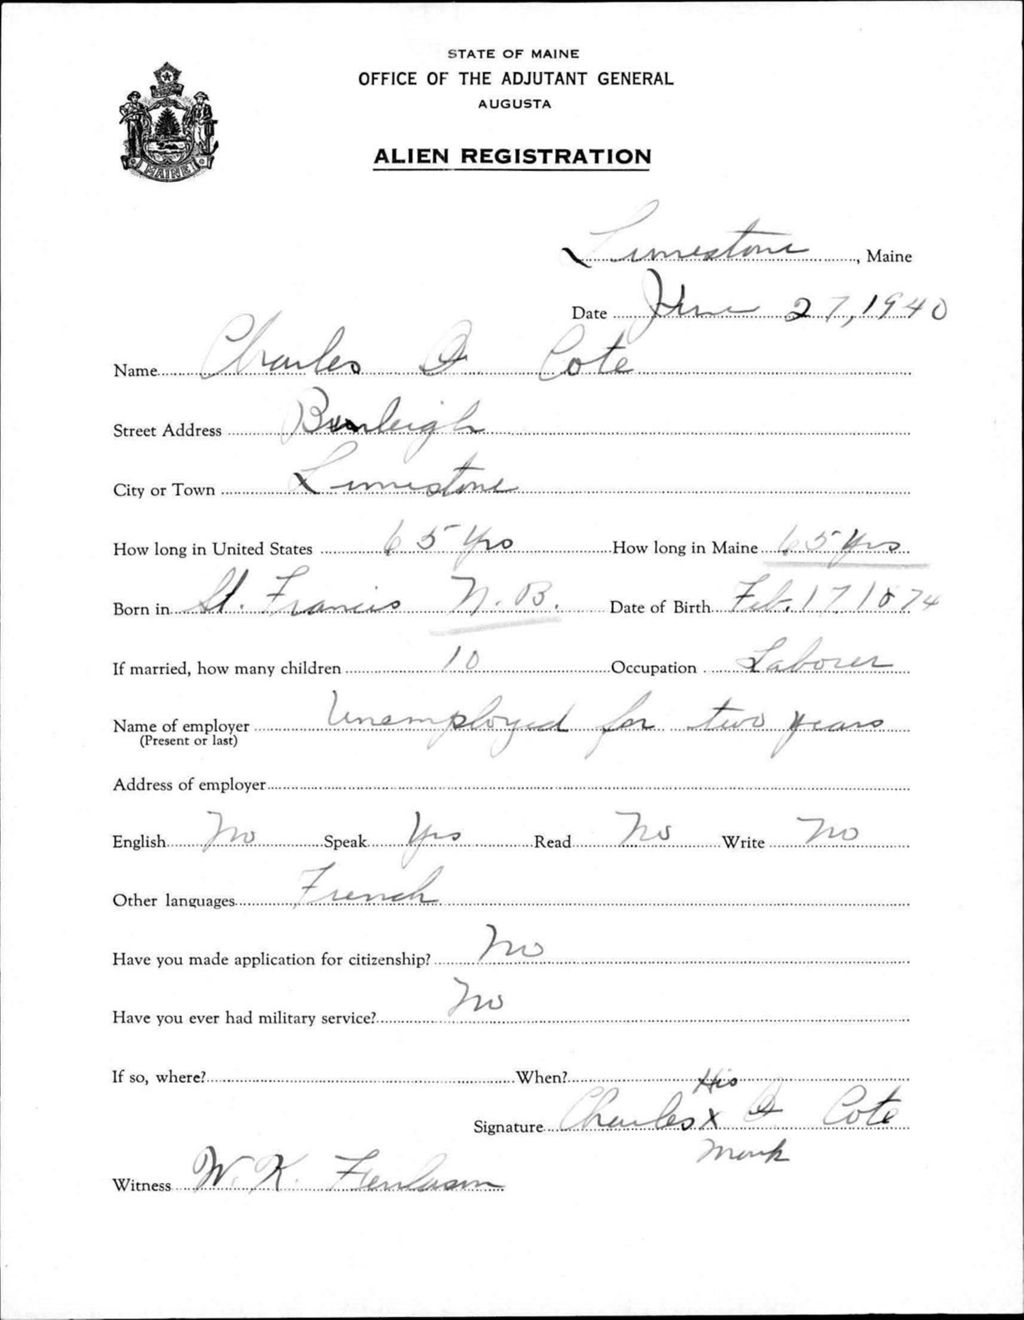 STATE OF MAINE
OFFICE OF THE ADJUTANT GENERAL
AUGUSTA
ALIEN REGISTRATION
MAINE
Limestone, Maine
Date June 27, 1940
Name Charles D Cote
Street Address Burleigh
City or Town Limestone
How long in United States 65 Yrs How long in Maine 65 Yrs
Born in St. Francis N. B. Date of Birth Feb. 17 1874
If married, how many children 10 Occupation Laborer
Name of employer Unemployed for two years
(Present or last)
Address of employer
English No Speak Yes Read No Write No
Other languages French
Have you made application for citizenship? No
Have you ever had military service? No
If so, where? When?
His
Signature Charles X D Cote
Mark
Witness W. K.